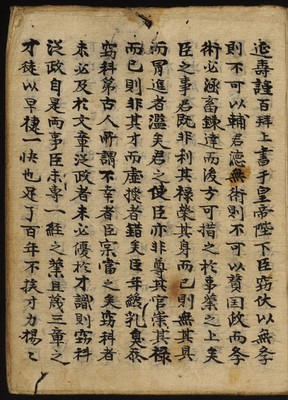 延壽謹百拜上書于皇帝陛下臣竊伏以無学
則不可以輔君德無術則不可以賛国政而学
術必涵畜鍊達而後方可措之於事業之上矣
臣之事君既非利其禄榮其身而已則無其具
而冒進者濫矣君之使臣亦非尊其官崇其禄
而已則非其才而虚授者錯矣臣年纔乳臭忝
竊科第古人所謂不幸者臣宗當之矣竊科者
未必及於文章從政者未必優於才識則窃科
從政自是兩事臣未專一經之業且蔑三章之
才徒以早捷一快也足了百年不揆才力揚々